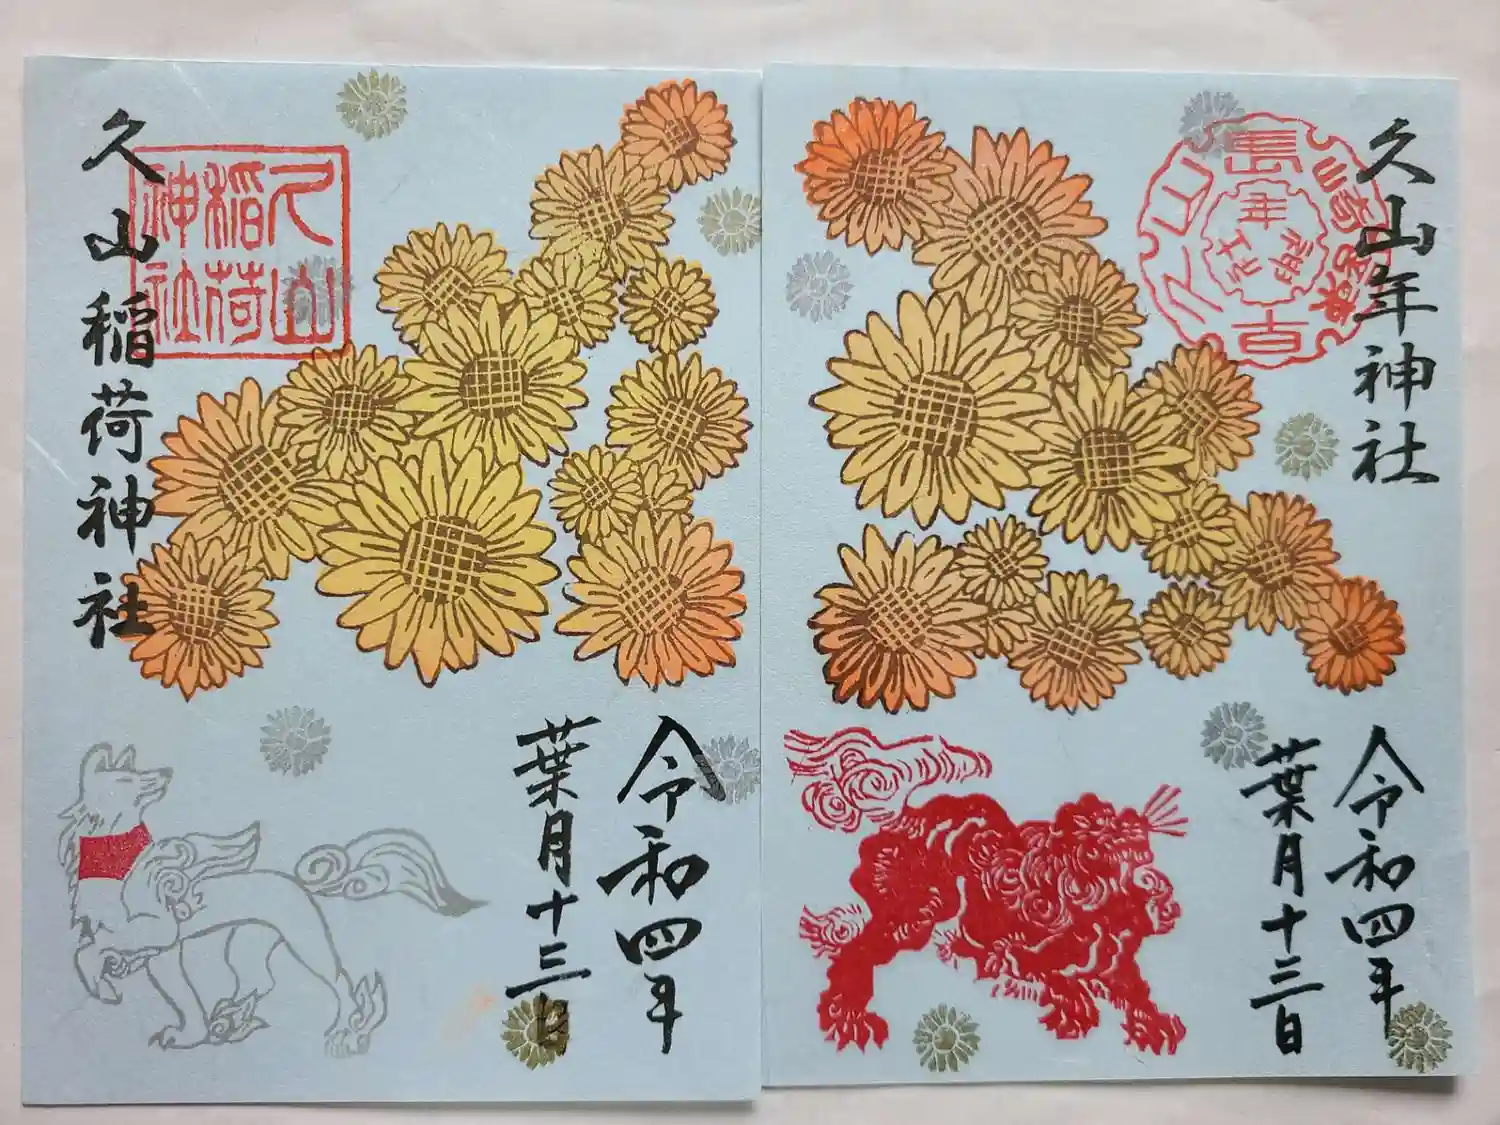 久山年神社
令和四年
葉月十三日
久山稲荷神社
久山
稲荷
神社
令和四年
葉月十三日